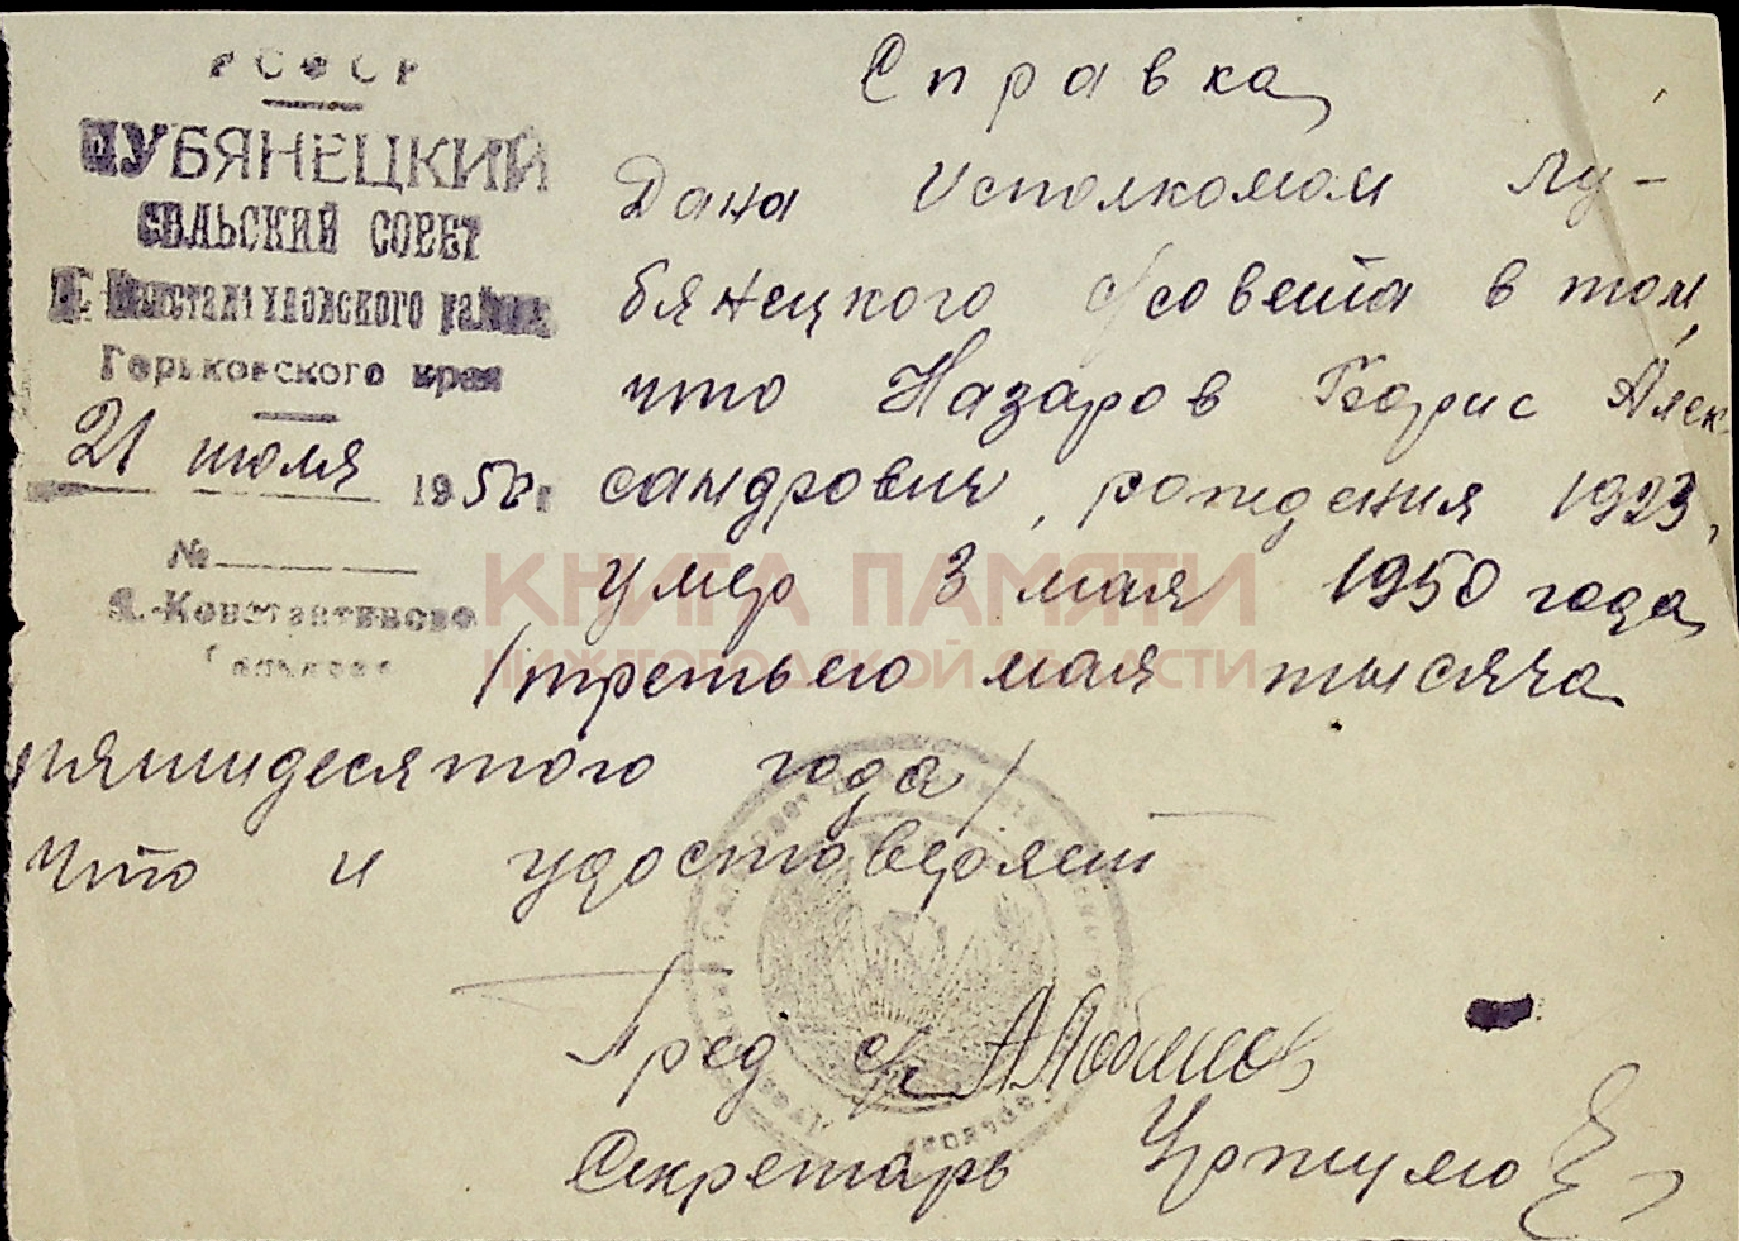 РСФСР
ЛУБЯНЕЦКИЙ
СЕЛЬСКИЙ СОВЕТ
Д.-Константиновского района
Горьковского края
21 июля 1950 г.
№
Д.-Константиново
Справка
Дана Исполкомом Лу-
бянецкого с/совета в том,
что Назаров Борис Алек-
сандрович, рождения 1923,
умер 3 мая 1950 года
/третьего мая тысяча
пятидесятого года/
что и удостоверяет
Пред с/с
Секретарь
КНИГА ПАМЯТИ
НИЖЕГОРОДСКОЙ ОБЛАСТИ